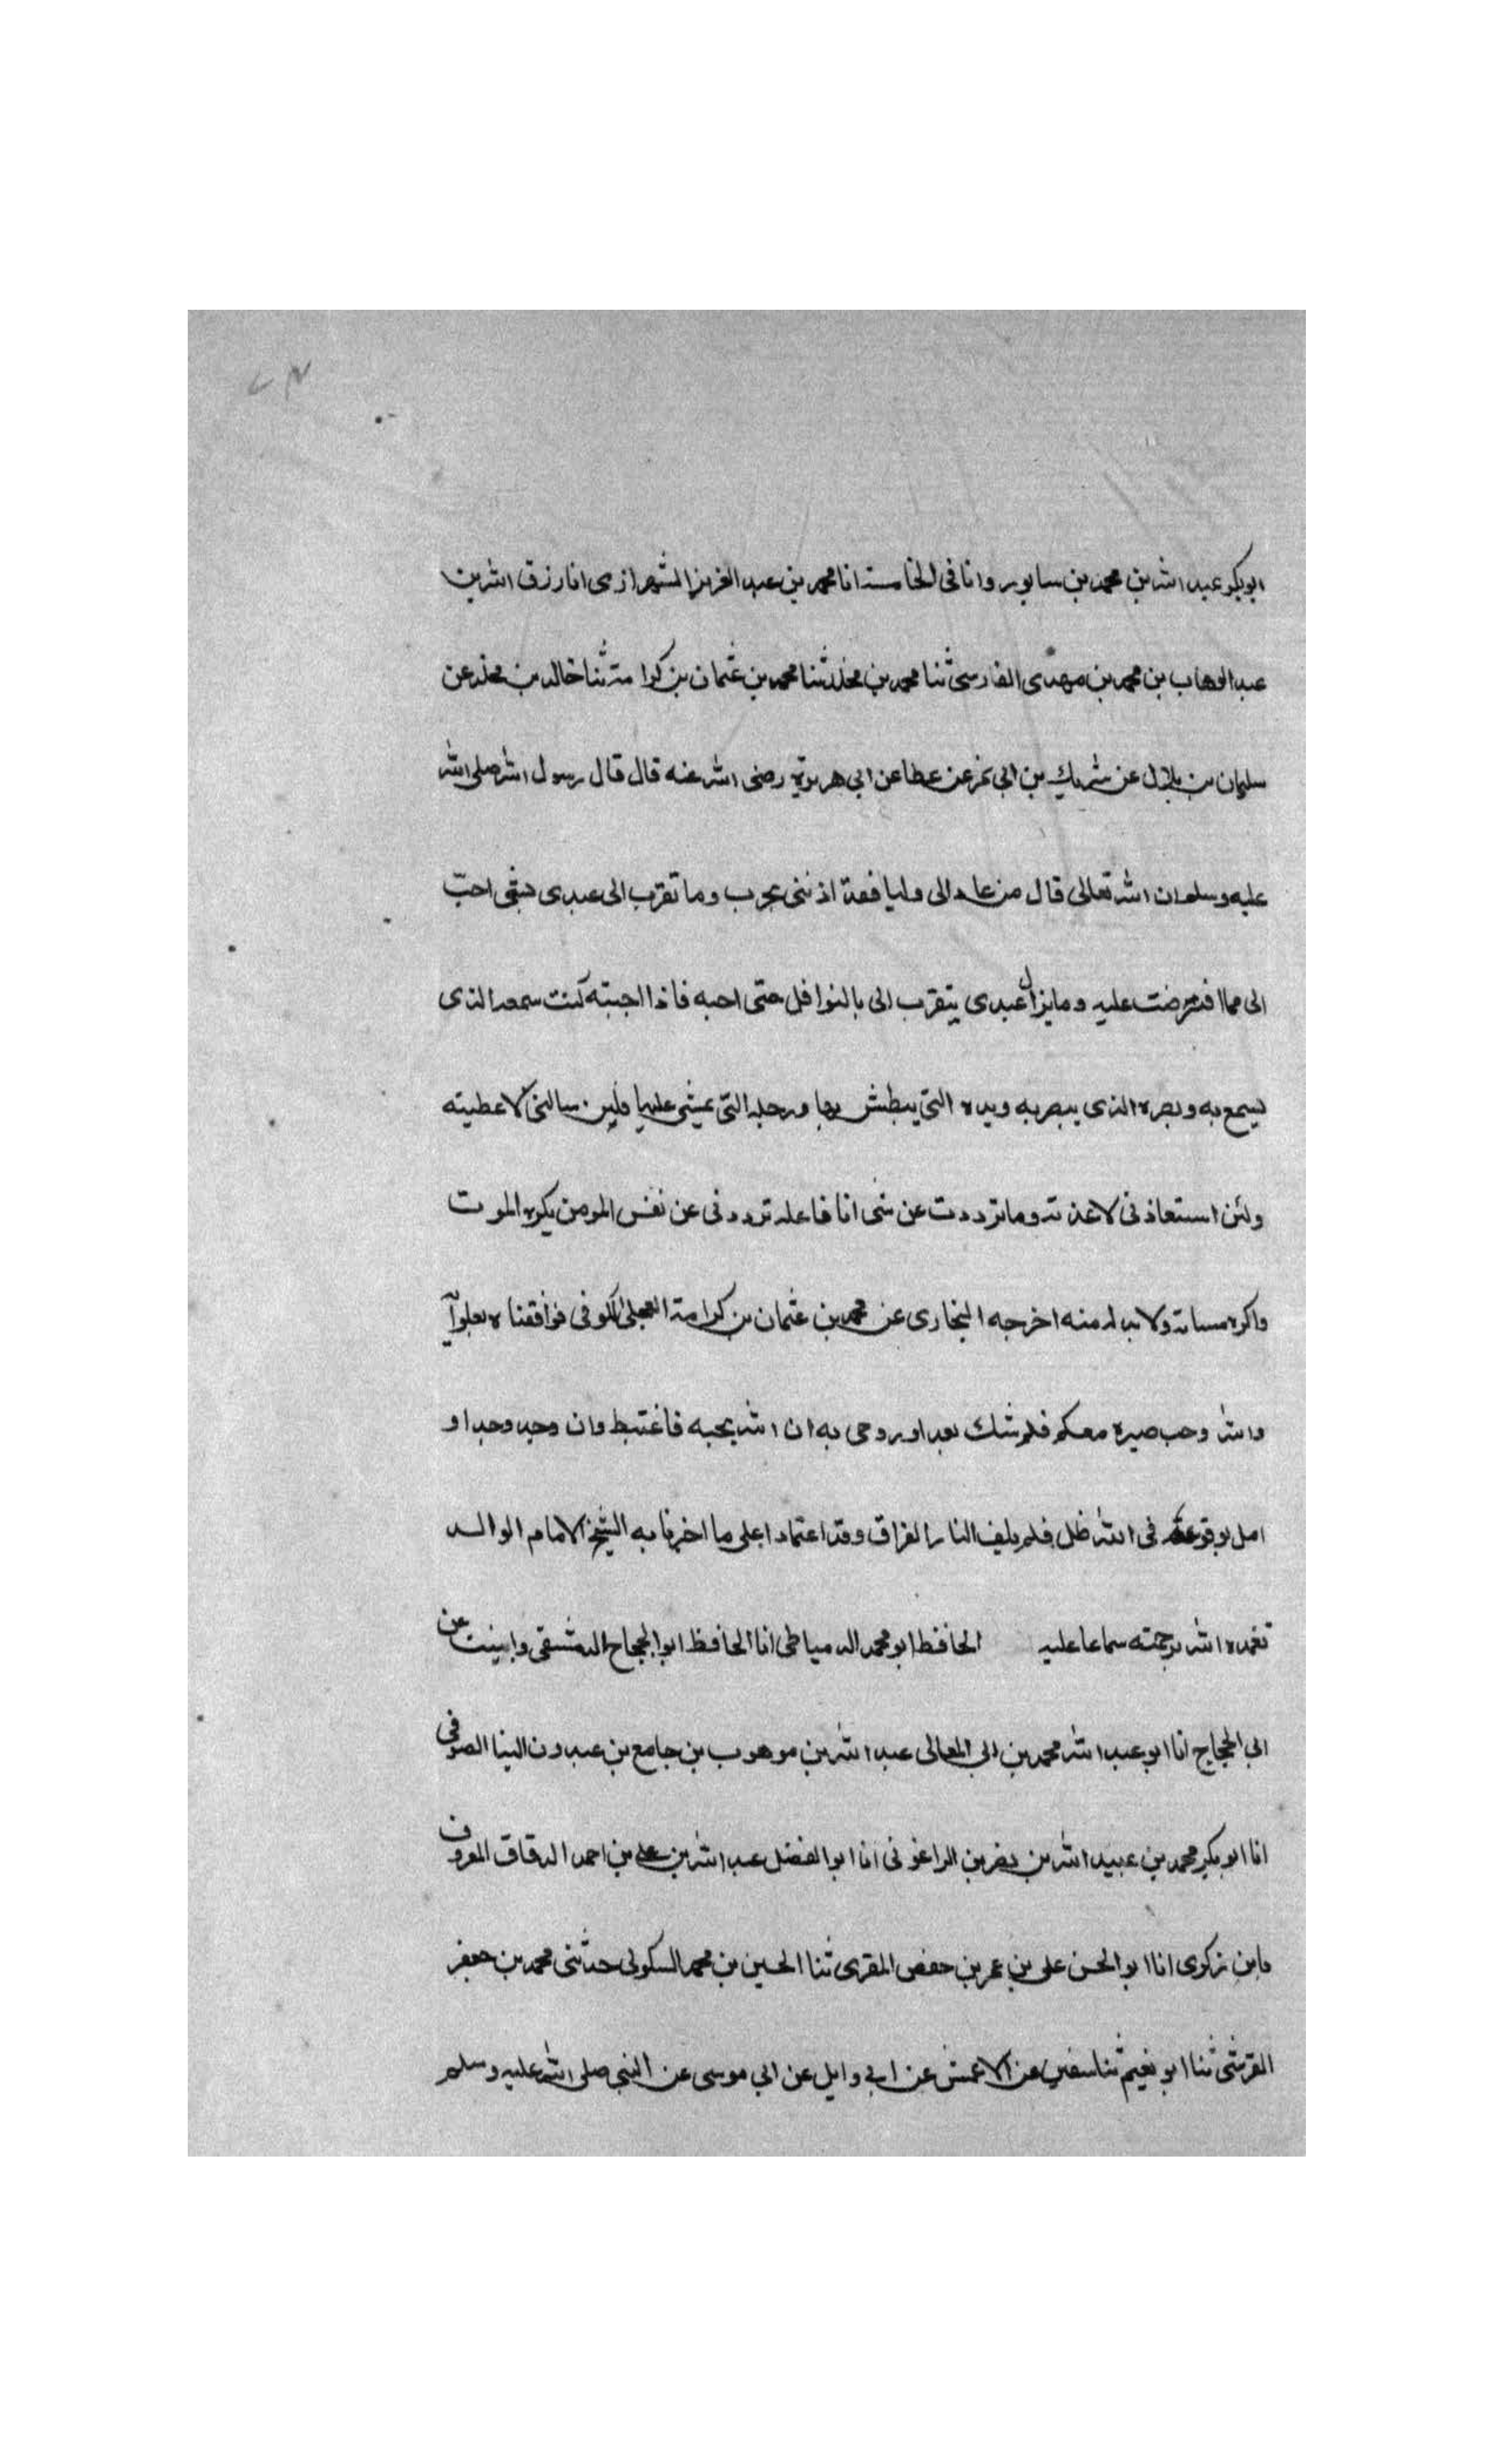 ابوبكر عبد الله بن محمد بن سابور وانا فى الخامسة انا محمد بن عبد العزيز الشيرازى انا رزق الله بن
عبد الوهاب بن محمد بن مهدى الفارسى ثنا محمد بن مخلد ثنا محمد بن عثمان بن كرامة ثنا خالد بن مخلد عن
سليمان بن بلال عن شريك بن ابى نمر عن عطا عن ابى هريرة رضى الله عنه قال قال رسول الله صلى الله
عليه وسلم ان الله تعالى قال من عاد الى وليا فقد اذننى بحرب وما تقرب الى عبدى احب
الى مما افترضت عليه وما يزال عبدى يتقرب الى بالنوافل حتى احبه فاذا احببته كنت سمعه الذى
يسمع به وبصره الذى يبصر به ويده التى يبطش بها ورجله التى يمشى عليها ولين سالنى لاعطيته
ولئن استعاذنى لاعذته وما ترددت عن شى انا فاعله ترددنى عن نفس المومن يكره الموت
واكره مساته ولا بد له منه اخرجه البخارى عن محمد بن عثمان بن كرامة العجلى الكوفى فوافقناه بعلو
والله وحب صيره معكم فلم شك بعد او يروحى به ان الله يحبه فاغتبط وان وحد وحدا و
امل فى الله ظل فلم النار الفراق وقد اعتمادا على ما اخبرنا به الشيخ الامام الوالد
تغمده الله برحمته سماعا عليه الحافظ ابو محمد الدمياطى انا الحافظ ابو الحجاج الدمشقى عن
ابى الحجاج انا ابو عبد الله محمد بن ابى المعالى عبد الله بن موهوب بن جامع بن عبدون البنا الصوفى
انا ابو بكر محمد بن عبيد الله بن نصر بن الراغونى انا ابو الفضل عبد الله بن على بن احمد الدقاق المعروف
بابن زكوى انا ابو الحسن على بن عمر بن حفص المقرى ثنا الحسين بن محمد السكونى حدثنى محمد بن جعفر
القرشى ثنا ابو نعيم ثنا سفين عن الاعمش عن ابى وايل عن ابى موسى عن النبى صلى الله عليه وسلم